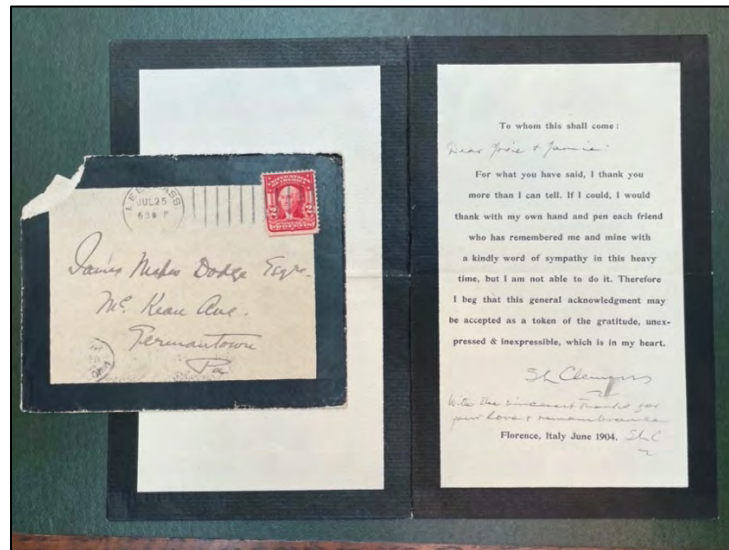 LEE MASS
JUL 25
630 P
2
James Mapes Dodge Esqre.
Mc. Kean Ave.
Germantown
Pa
To whom this shall come:
Dear Josie & Jamie:
For what you have said, I thank you
more than I can tell. If I could, I would
thank with my own hand and pen each friend
who has remembered me and mine with
a kindly word of sympathy in this heavy
time, but I am not able to do it. Therefore
I beg that this general acknowledgment may
be accepted as a token of the gratitude, unex-
pressed & inexpressible, which is in my heart.
SL Clemens
With the sincerest thanks for
your love & remembrance
Florence, Italy June 1904. SLC